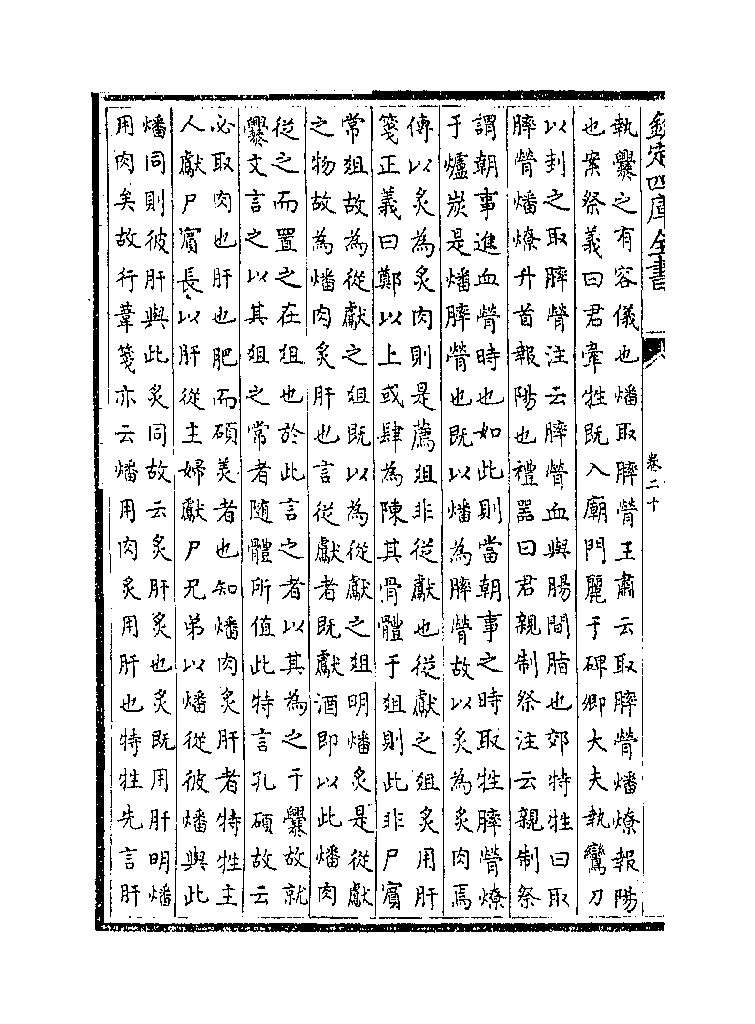 欽定四庫全書
卷二十
執爨之有容儀也燔取膟膋王肅云取膟膋燔燎報陽
也案祭義曰君牽牲既入廟門麗于碑卿大夫執鸞刀
以刲之取膟膋注云膟膋血與腸間脂也郊特牲曰取
膟膋燔燎升首報陽也禮器曰君親制祭注云親制祭
謂朝事進血膋時也如此則當朝事之時取牲膟膋燎
于爐炭是燔膟膋也既以燔為膟膋故以炙為炙肉焉
傳以炙為炙肉則是薦俎非從獻也從獻之俎炙用肝
箋正義曰鄭以上或肆為陳其骨體于俎則此非尸賓
常俎故為從獻之俎既以為從獻之俎明燔炙是從獻
之物故為燔肉炙肝也言從獻者既獻酒即以此燔肉
從之而置之在俎也於此言之者以其為之于爨故就
爨文言之以其俎之常者隨體所值此特言孔碩故云
必取肉也肝也肥而碩美者也知燔肉炙肝者特牲主
人獻尸賓長以肝從主婦獻尸兄弟以燔從彼燔與此
燔同則彼肝與此炙同故云炙肝炙也炙既用肝明燔
用肉矣故行葦箋亦云燔用肉炙用肝也特牲先言肝